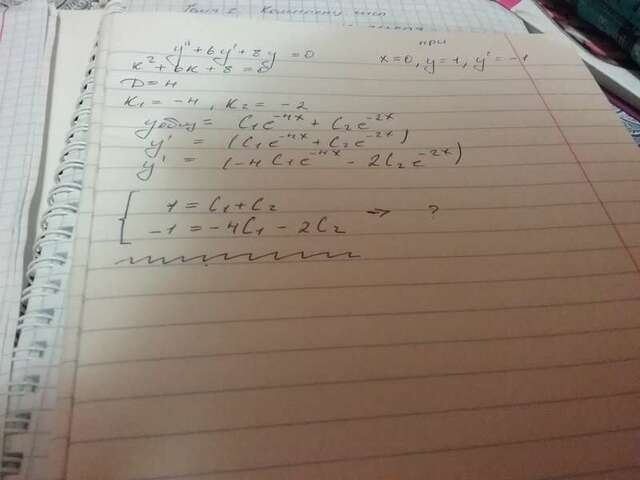 y'' + 6y' + 8y = 0
при
x=0, y=1, y'=-1
k² + 6k + 8 = 0
D = 4
k₁ = -4, k₂ = -2
y общ = C₁e^-4x + C₂e^-2x
y' = (C₁e^-4x + C₂e^-2x)
y' = (-4C₁e^-4x - 2C₂e^-2x)
1 = C₁ + C₂
-1 = -4C₁ - 2C₂ => ?